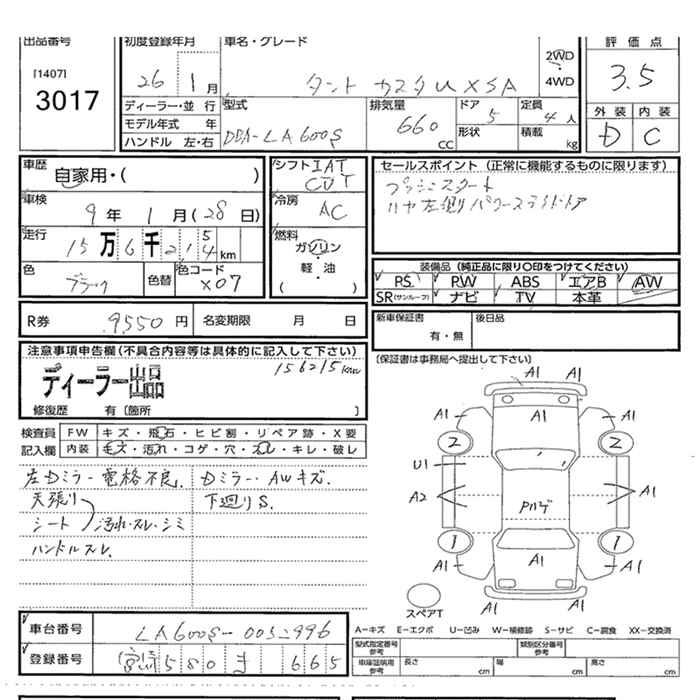 出品番号
[1407]
3017
初度登録年月
26 1 月
車名・グレード
タント カスタム X SA
2WD
4WD
評価点
3.5
外装 内装
D C
ディーラー・並行
モデル年式 年
ハンドル 左・右
型式
DBA-LA600S
排気量
660
CC
ドア
5
形状
定員
4 人
積載
kg
車歴
自家用・( )
車検
9 年 1 月 (28 日)
走行
15 万 6 千 2 1 5 km
色
ブラック
色替
色コード
X07
シフト IAT
CVT
冷房
AC
燃料
ガソリン
軽・油
( )
セールスポイント (正常に機能するものに限ります)
プッシュスタート
リヤ左側パワースライドドア
装備品 (純正品に限り○印をつけてください)
PS PW ABS エアB AW
SR(サンルーフ) ナビ TV 本革
R券 9550 円
名変期限 月 日
新車保証書
有・無
後日品
(保証書は事務局へ提出して下さい)
注意事項申告欄(不具合内容等は具体的に記入して下さい)
156215km
ディーラー出品
修復歴 有〔箇所 〕
検査員
記入欄
FW キズ・飛石・ヒビ割・リペア跡・X要
内装 モズ・汚れ・コゲ・穴・スレ・キレ・破レ
左Dミラー電格不良.
天張り
シート 汚れ・スレ・シミ
ハンドルスレ.
Dミラー・AWキズ.
下廻りS.
A1
A1 A1
A1 A1 A1
2 2
U1
A2 A1
Pハゲ
1 1
A1 A1 A1
A1 A1
スペアT
車台番号 LA600S-0052996
登録番号 宮崎 580 665
A-キズ E-エクボ U-凹み W-補修跡 S-サビ C-腐食 XX-交換済
型式指定番号
参考
類別区分番号
参考
車庫証明用
参考
長さ cm
幅 cm
高さ cm